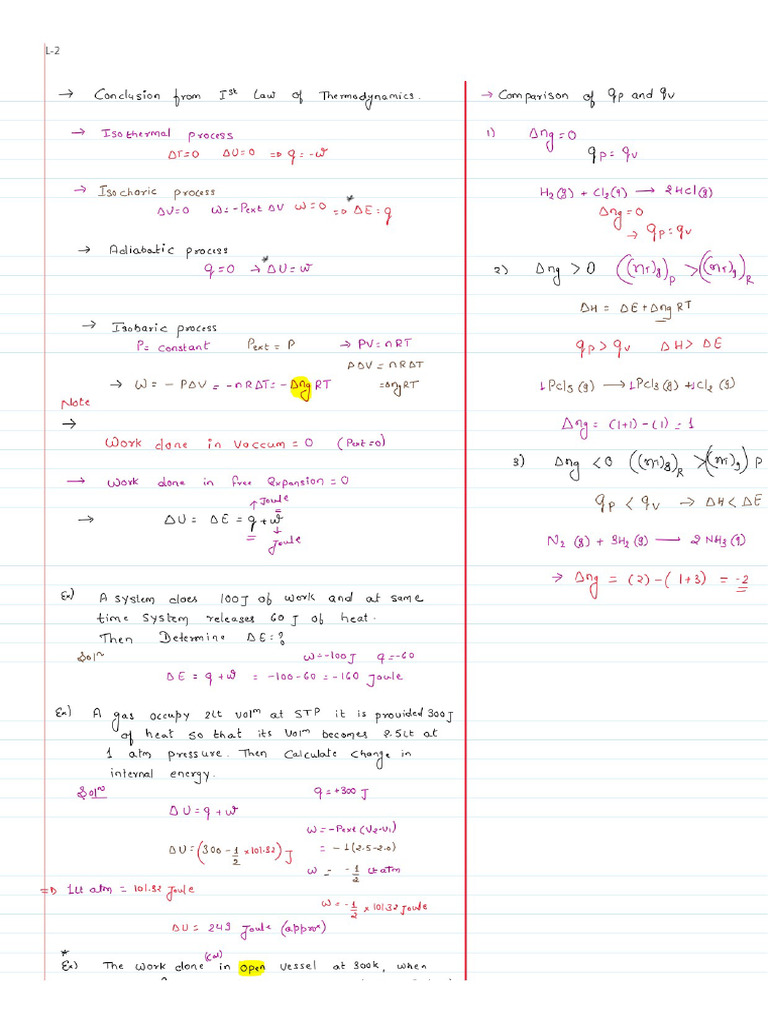 L-2
→ Conclusion from Ist Law of Thermodynamics.
→ Isothermal process
ΔT=0 ΔU=0 ⇒ q=-w
→ Isochoric process
ΔV=0 W=-Pext ΔV W=0 ⇒ *ΔE=q
→ Adiabatic process
q=0 → *ΔU=w
→ Isobaric process
P= constant Pext = P → PV=nRT
PΔV=nRΔT
→ W= - PΔV = -nRΔT= -Δng RT =Δng RT
Note
→
Work done in vaccum=0 (Pext=0)
→ Work done in free expansion=0
↑Joule
→ ΔU= ΔE= q+w
↓
Joule
Ex) A system does 100J of work and at same
time system releases 60 J of heat.
Then Determine ΔE=?
Soln w=-100J q=-60
ΔE = q+w = -100-60=-160 Joule
Ex) A gas occupy 2lt volm at STP it is provided 300J
of heat so that its volm becomes 2.5lt at
1 atm pressure. Then calculate change in
internal energy.
Soln q=+300 J
ΔU=q+w
w=-Pext(V2-V1)
ΔU=(300-1/2 ×101.32)J = -1(2.5-2.0)
w= -1/2 lt atm
⇒ 1lt atm = 101.32 Joule
w=-1/2 × 101.32 Joule
ΔU= 249 Joule (approx)
*
(Cal)
Ex) The work done in open vessel at 300k, when
→ Comparison of qp and qv
1) Δng=0
qp=qv
H2(g) + Cl2(g) → 2HCl(g)
Δng=0
→ qp=qv
2) Δng>0 ((nr)g)P >((nr)g)R
ΔH = ΔE+Δng RT
qp>qv ΔH> ΔE
1PCl5(g) → 1PCl3(g)+1Cl2(g)
Δng= (1+1)-(1)=1
3) Δng <0 ((nr)g)R >((nr)g) P
qp < qv → ΔH<ΔE
N2(g) + 3H2(g) → 2NH3(g)
→ Δng = (2)-(1+3) = -2